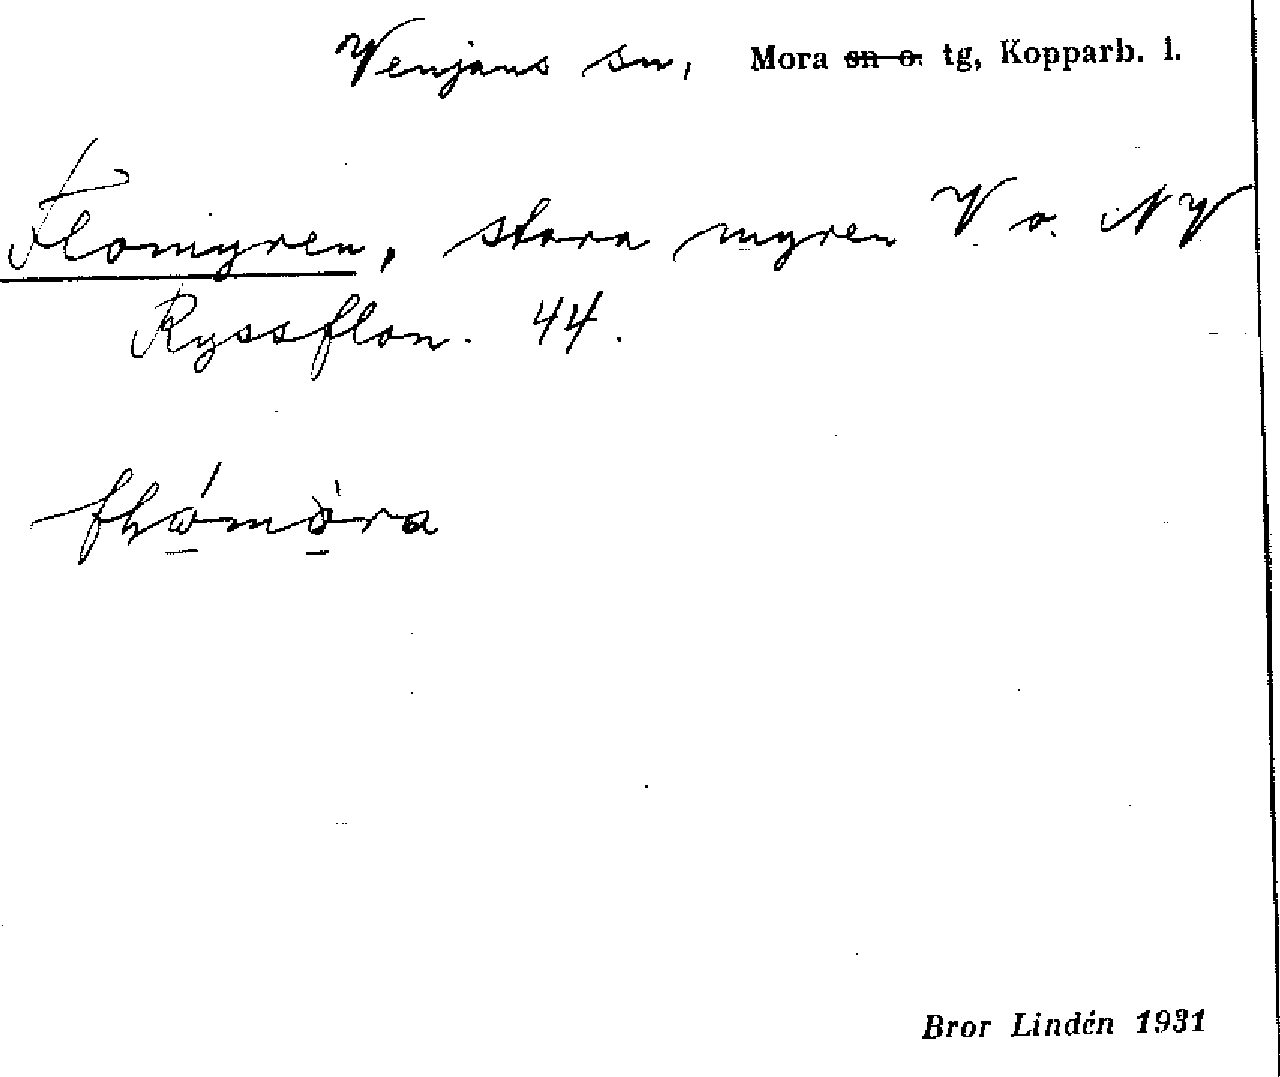 Venjans sn, Mora ~~sn o.~~ tg, Kopparb. l.
Flomyren, stora myren V. o. NV
Ryssflon. 44.
Bror Lindén 1931